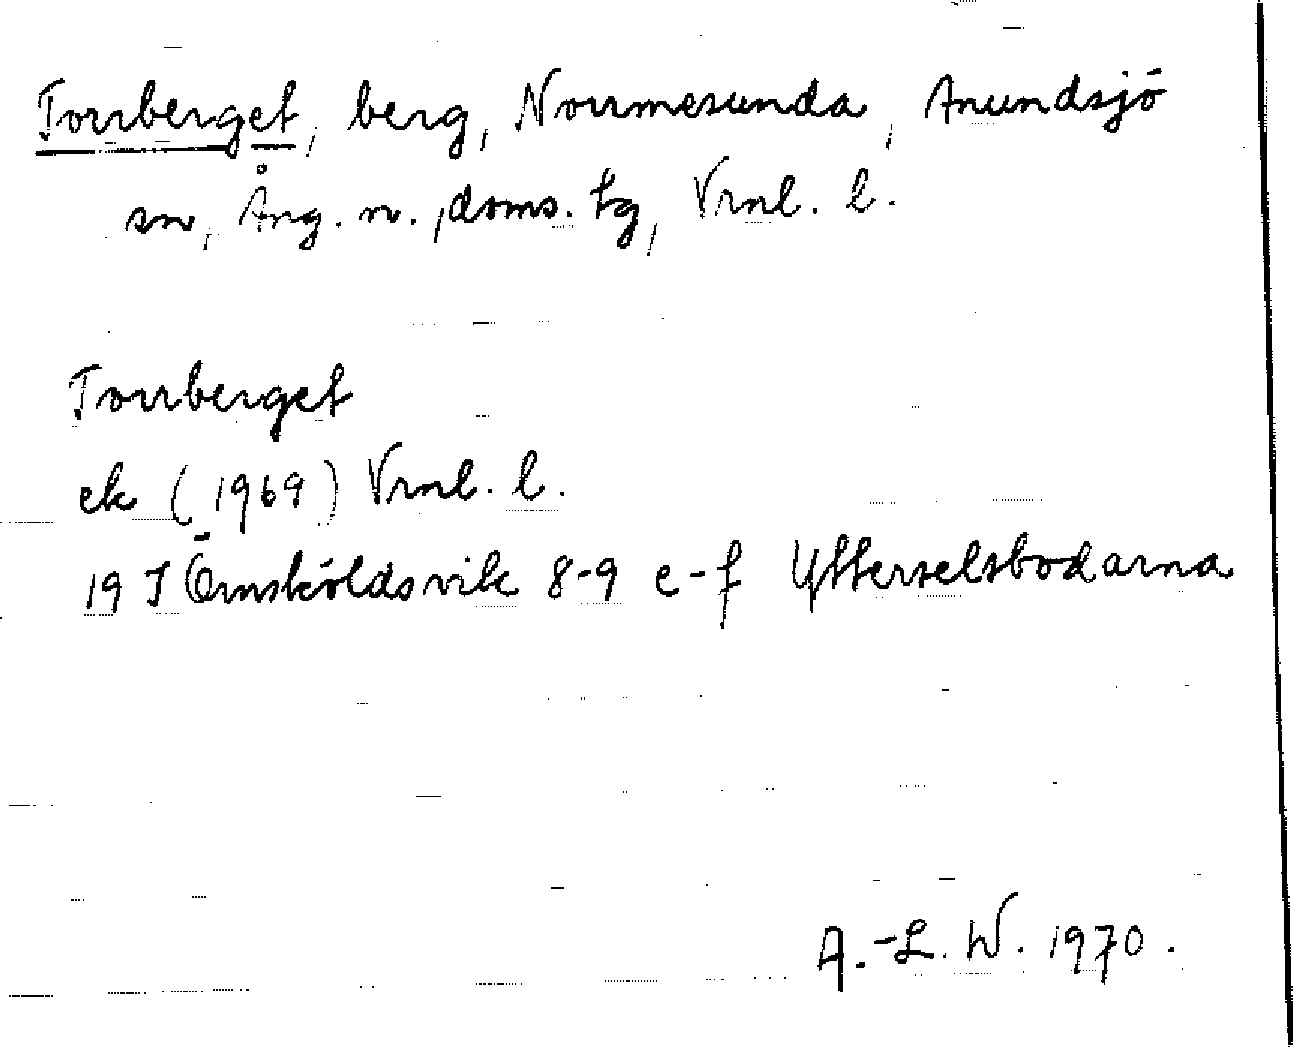 Torrberget, berg, Norrmesunda, Anundsjö
sn, Ång. n., doms. tg, Vrnl. l.
Torrberget
ek (1969) Vrnl. l.
19 I Örnsköldsvik 8-9 e-f Ytterselsbodarna
A.-L. W. 1970.